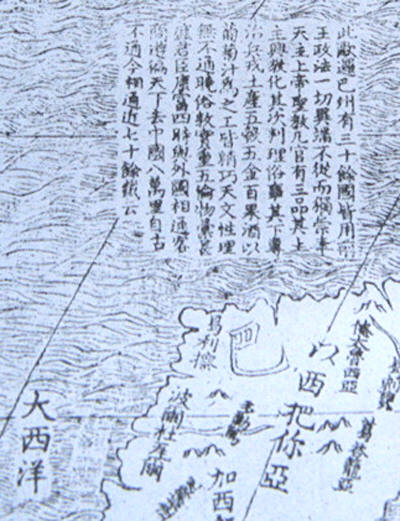 此歐邏巴州有三十餘國皆用前
王政法一切異端不從而獨崇奉
天主上帝聖教凡官有三品其上
主興教化其次判理俗事其下專
治兵戎土產五穀五金百果酒以
葡萄汁為之工皆精巧天文性理
無不通曉俗敦實重五倫物彙甚
盛君臣康富四時與外國相通客
商遊遍天下去中國八萬里自古
不通今相通近七十餘載云
以西把你亞
波爾杜瓦爾
加西
大西洋